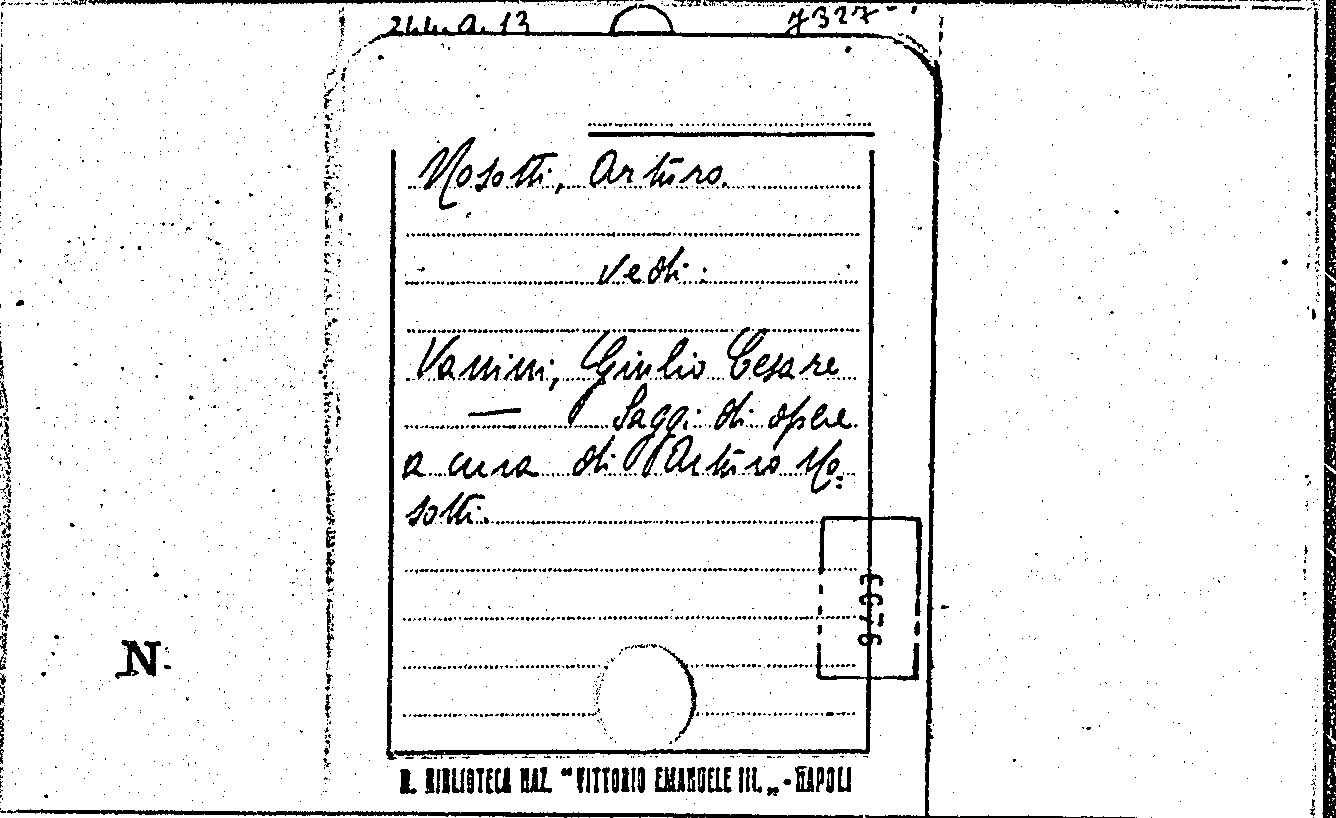 7327
Nosotti, Arturo.
Vedi:
Vanini, Giulio Cesare
— Saggi di opere
a cura di Arturo No=
sotti.
N
R. BIBLIOTECA NAZ. "VITTORIO EMANUELE III." - NAPOLI